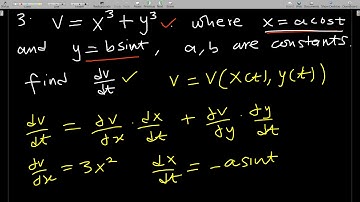 3. V = x³ + y³ ✓. where x = a cost
and y = b sint, a, b are constants
find dv/dt ✓ V = V(x(t), y(t))
dv/dt = ∂v/∂x · dx/dt + ∂v/∂y · dy/dt
∂v/∂x = 3x² dx/dt = -a sint